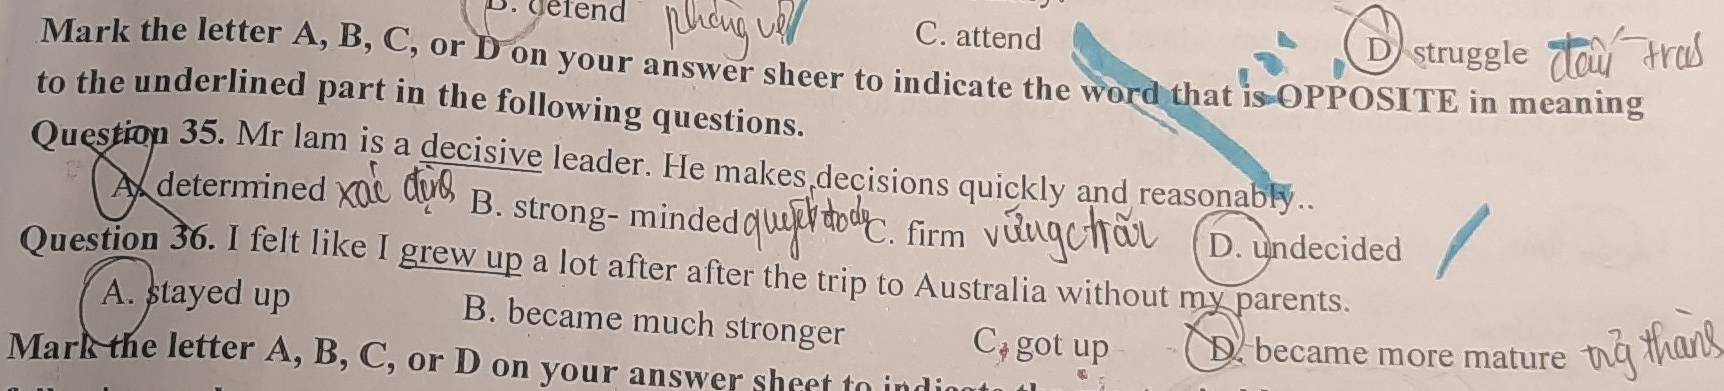 B. defend phòng vệ C. attend D. struggle
Mark the letter A, B, C, or D on your answer sheer to indicate the word that is OPPOSITE in meaning
to the underlined part in the following questions.
Question 35. Mr lam is a decisive leader. He makes decisions quickly and reasonably..
A. determined xác định B. strong- minded C. firm vững chãi D. undecided
Question 36. I felt like I grew up a lot after after the trip to Australia without my parents.
A. stayed up B. became much stronger C. got up D. became more mature
Mark the letter A, B, C, or D on your answer sheet to